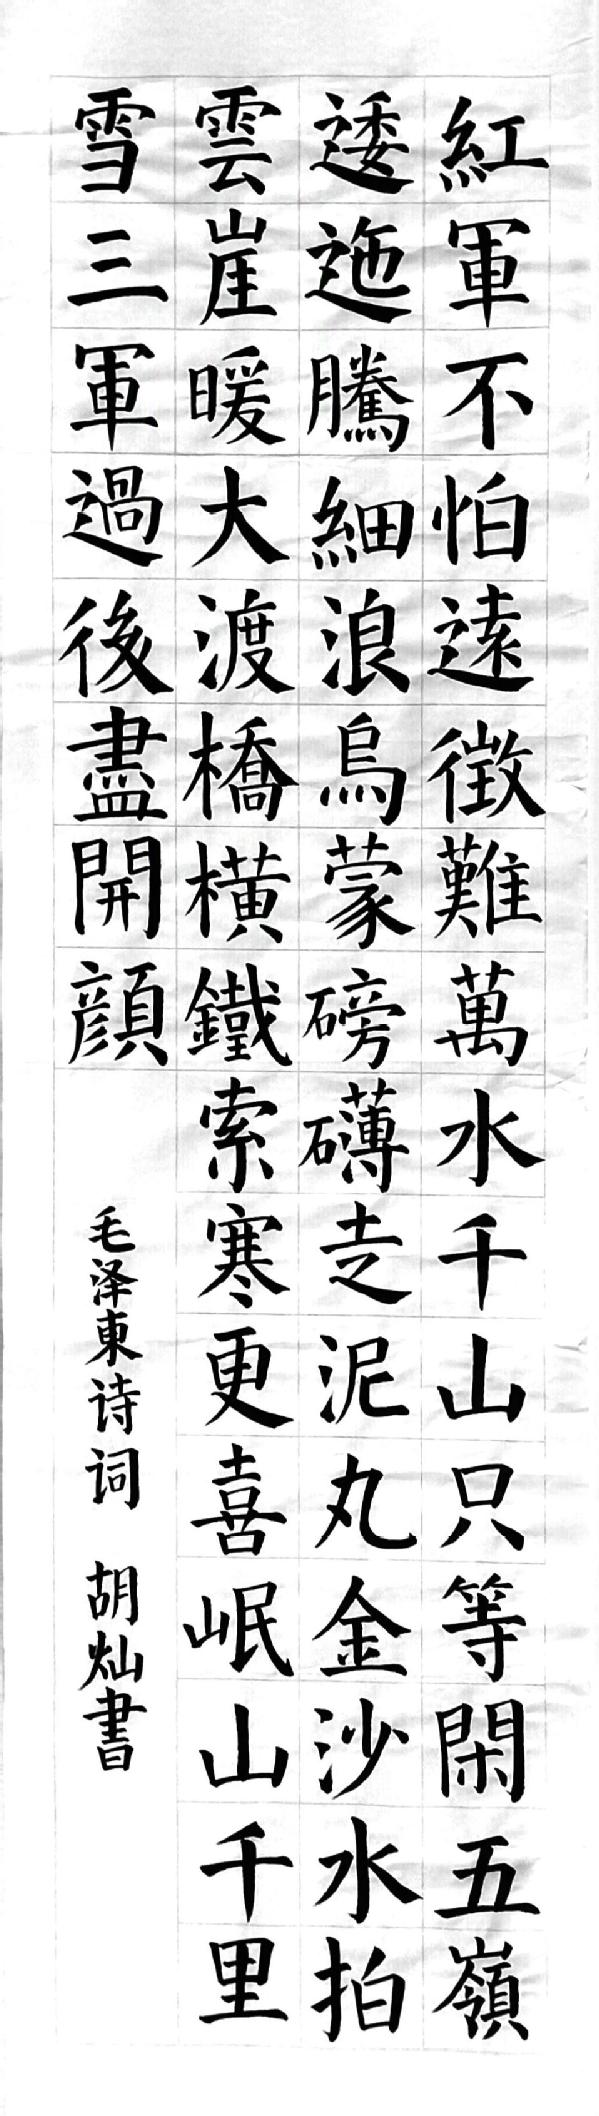 紅軍不怕遠徵難萬水千山只等閑五嶺
逶迤騰細浪烏蒙磅礴走泥丸金沙水拍
雲崖暖大渡橋橫鐵索寒更喜岷山千里
雪三軍過後盡開顔
毛泽東诗词 胡灿書